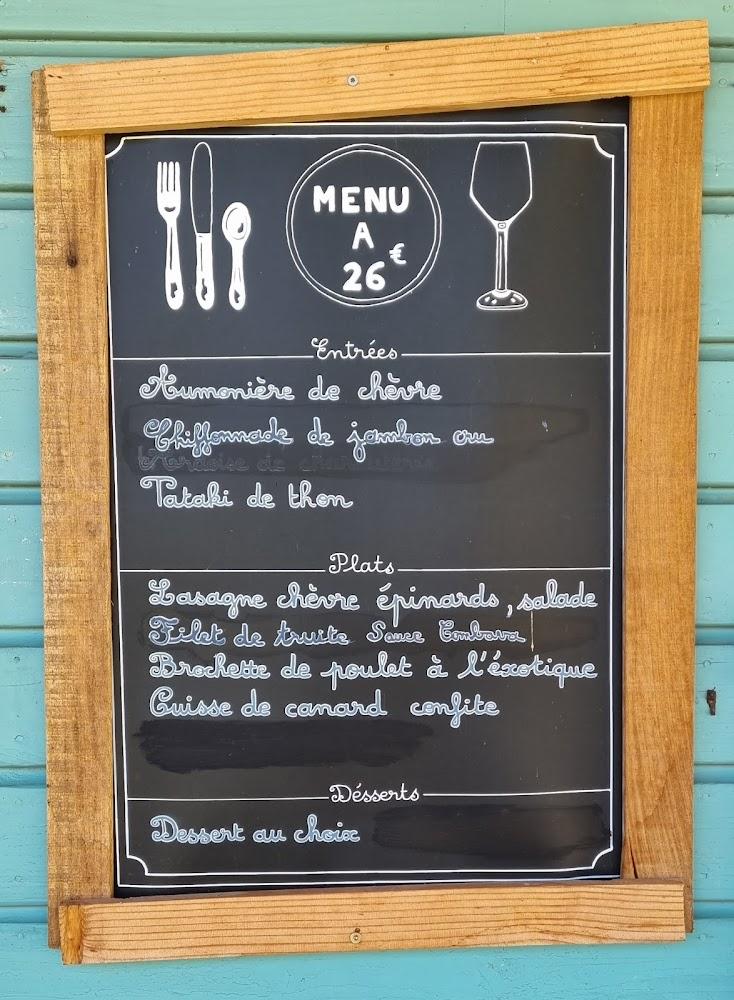 MENU
A
26 €
Entrées
Aumonière de chèvre
Chiffonnade de jambon cru
Tataki de thon
Plats
Lasagne chèvre épinards, salade
Filet de truite Sauce Combava
Brochette de poulet à l'éxotique
Cuisse de canard confite
Désserts
Dessert au choix